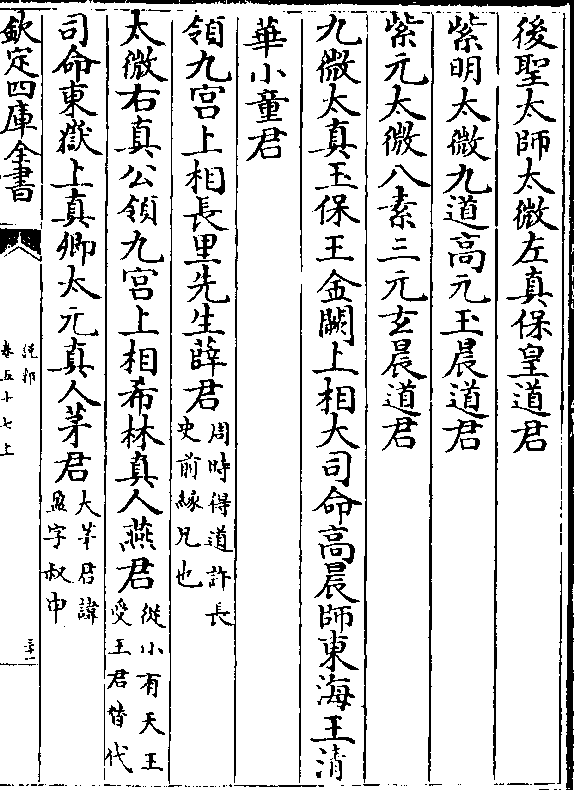 後聖太師太微左真保皇道君
紫明太微九道高元玉晨道君
紫元太微八素三元玄晨道君
九微太真玉保王金闕上相大司命高晨師東海王清
華小童君
領九宮上相長里先生薛君周時得道許長
史前緣兄也
太微右真公領九宮上相希林真人燕君從小有天王
受王君替代
司命東嶽上真卿太元真人茅君大茅君諱
盈字叔申
欽定四庫全書
說郛
卷五十七上